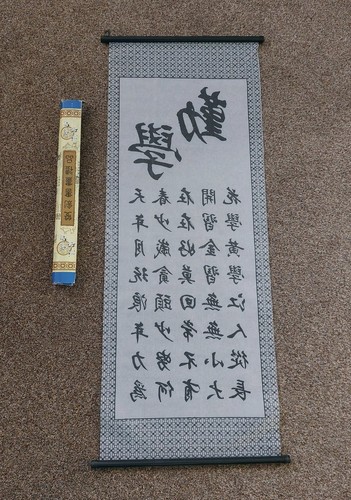 勤學
花開在春天
學習在少年
黃金好歲月
學習莫貪玩
江無回頭浪
人無常少年
從小不努力
長大有何為